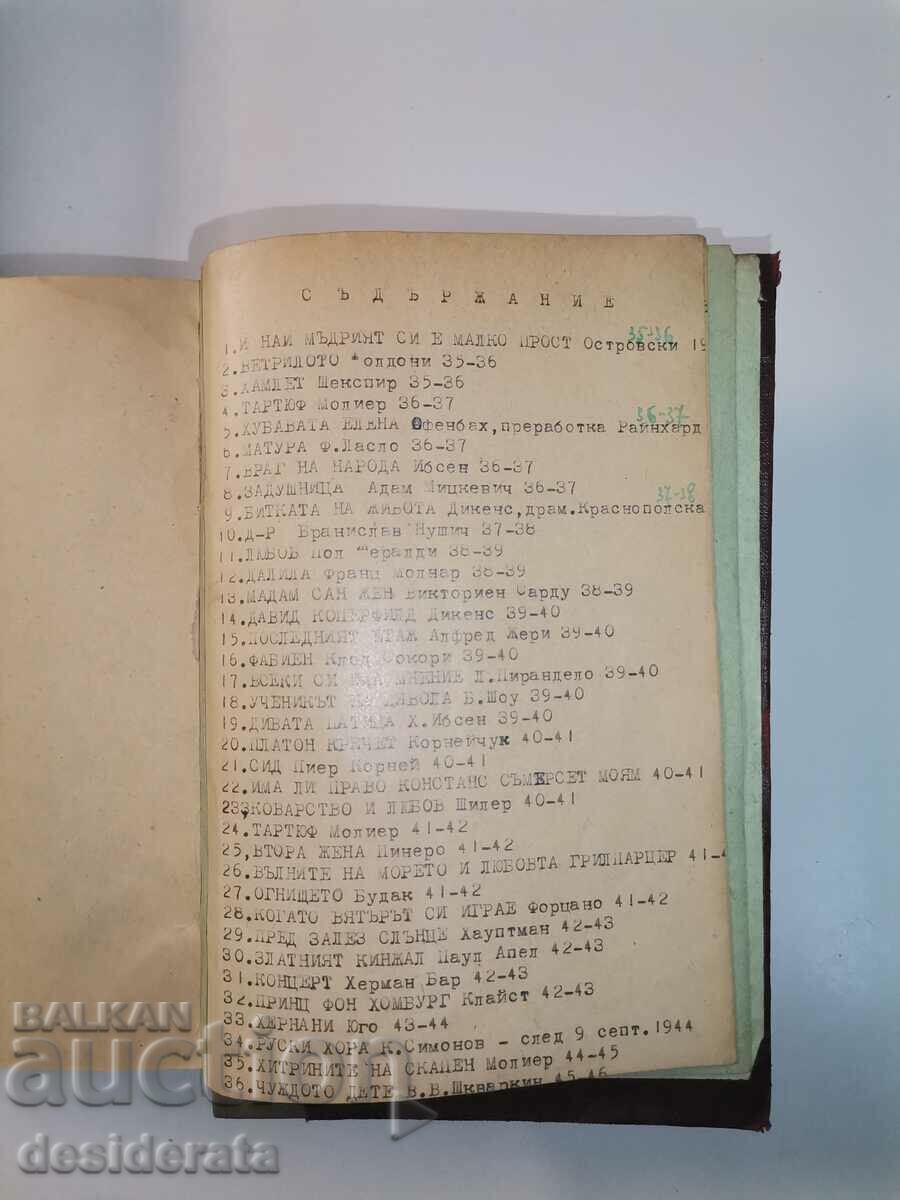 СЪДЪРЖАНИЕ
35-36
1.И НАИ МЪДРИЯТ СИ Е МАЛКО ПРОСТ Островски 19
2.ВЕТРИЛОТО олдони 35-36
3.ХАМЛЕТ Шекспир 35-36
4.ТАРТЮФ Молиер 36-37
36-37
5.ХУБАВАТА ЕЛЕНА Офенбах,преработка Райнхард
6.МАТУРА Ф.Ласло 36-37
7.ВРАГ НА НАРОДА Ибсен 36-37
8.ЗАДУШНИЦА Адам Мицкевич 36-37
37-38
9.БИТКАТА НА ЖИВОТА Дикенс,драм.Краснополска
10.Д-Р Бранислав Нушич 37-38
11.ЛЮБОВ Пол Жералди 38-39
12.ДАЛИЛА Франц Молнар 38-39
13.МАДАМ САН ЖЕН Викториен Сарду 38-39
14.ДАВИД КОПЕРФИЛД Дикенс 39-40
15.ПОСЛЕДНИЯТ ЕТАЖ Алфред Жери 39-40
16.ФАБИЕН Клод Сокори 39-40
17.ВСЕКИ СИ ИМА МНЕНИЕ Л.Пирандело 39-40
18.УЧЕНИКЪТ НА ДЯВОЛА Б.Шоу 39-40
19.ДИВАТА ПАТИЦА Х.Ибсен 39-40
20.ПЛАТОН КРЕЧЕТ Корнейчук 40-41
21.СИД Пиер Корней 40-41
22.ИМА ЛИ ПРАВО КОНСТАНС СЪМЕРСЕТ МОЯМ 40-41
23,КОВАРСТВО И ЛЮБОВ Шилер 40-41
24.ТАРТЮФ Молиер 41-42
25,ВТОРА ЖЕНА Пинеро 41-42
26.ВЪЛНИТЕ НА МОРЕТО И ЛЮБОВТА ГРИЛПАРЦЕР 41-4
27.ОГНИЩЕТО Будак 41-42
28.КОГАТО ВЯТЪРЪТ СИ ИГРАЕ Форцано 41-42
29.ПРЕД ЗАЛЕЗ СЛЪНЦЕ Хауптман 42-43
30.ЗЛАТНИЯТ КИНЖАЛ Паул Апел 42-43
31.КОНЦЕРТ Херман Бар 42-43
32.ПРИНЦ ФОН ХОМБУРГ Клайст 42-43
33.ХЕРНАНИ Юго 43-44
34.РУСКИ ХОРА К.Симонов - след 9 септ.1944
35.ХИТРИНИТЕ НА СКАПЕН Молиер 44-45
36.ЧУЖДОТО ДЕТЕ В.В.Шкваркин 45-46
BALKAN
auction
desiderata